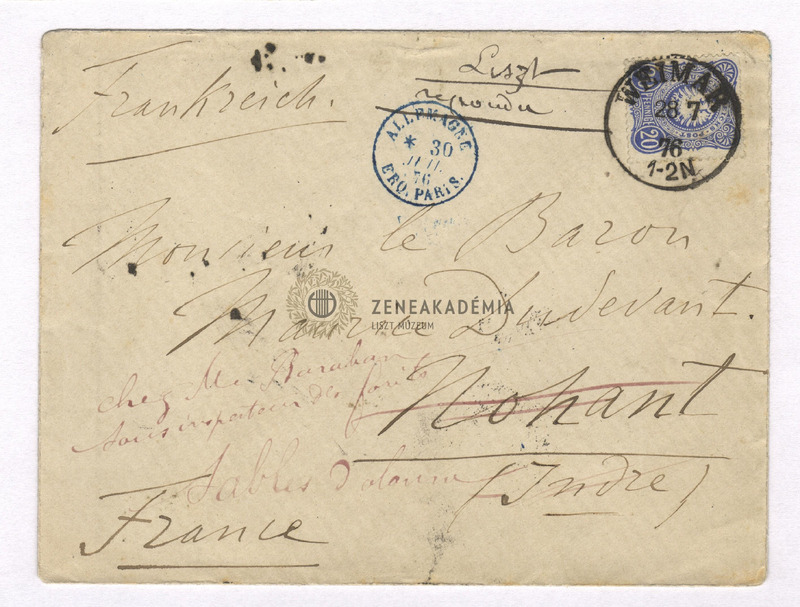 Frankreich.
Liszt
repondu
WEIMAR
28. 7.
76
1-2N.
20
PFENNIG
POST
ALLEMAGNE
* 30
JUIL.
76
ERQ. PARIS.
Monsieur le Baron
Maurice Dudevant.
ZENEAKADÉMIA
LISZT MÚZEUM
chez Mr Baraban
sous inspecteur des forêts
Nohant
Sables d'olonne
(Indre)
France